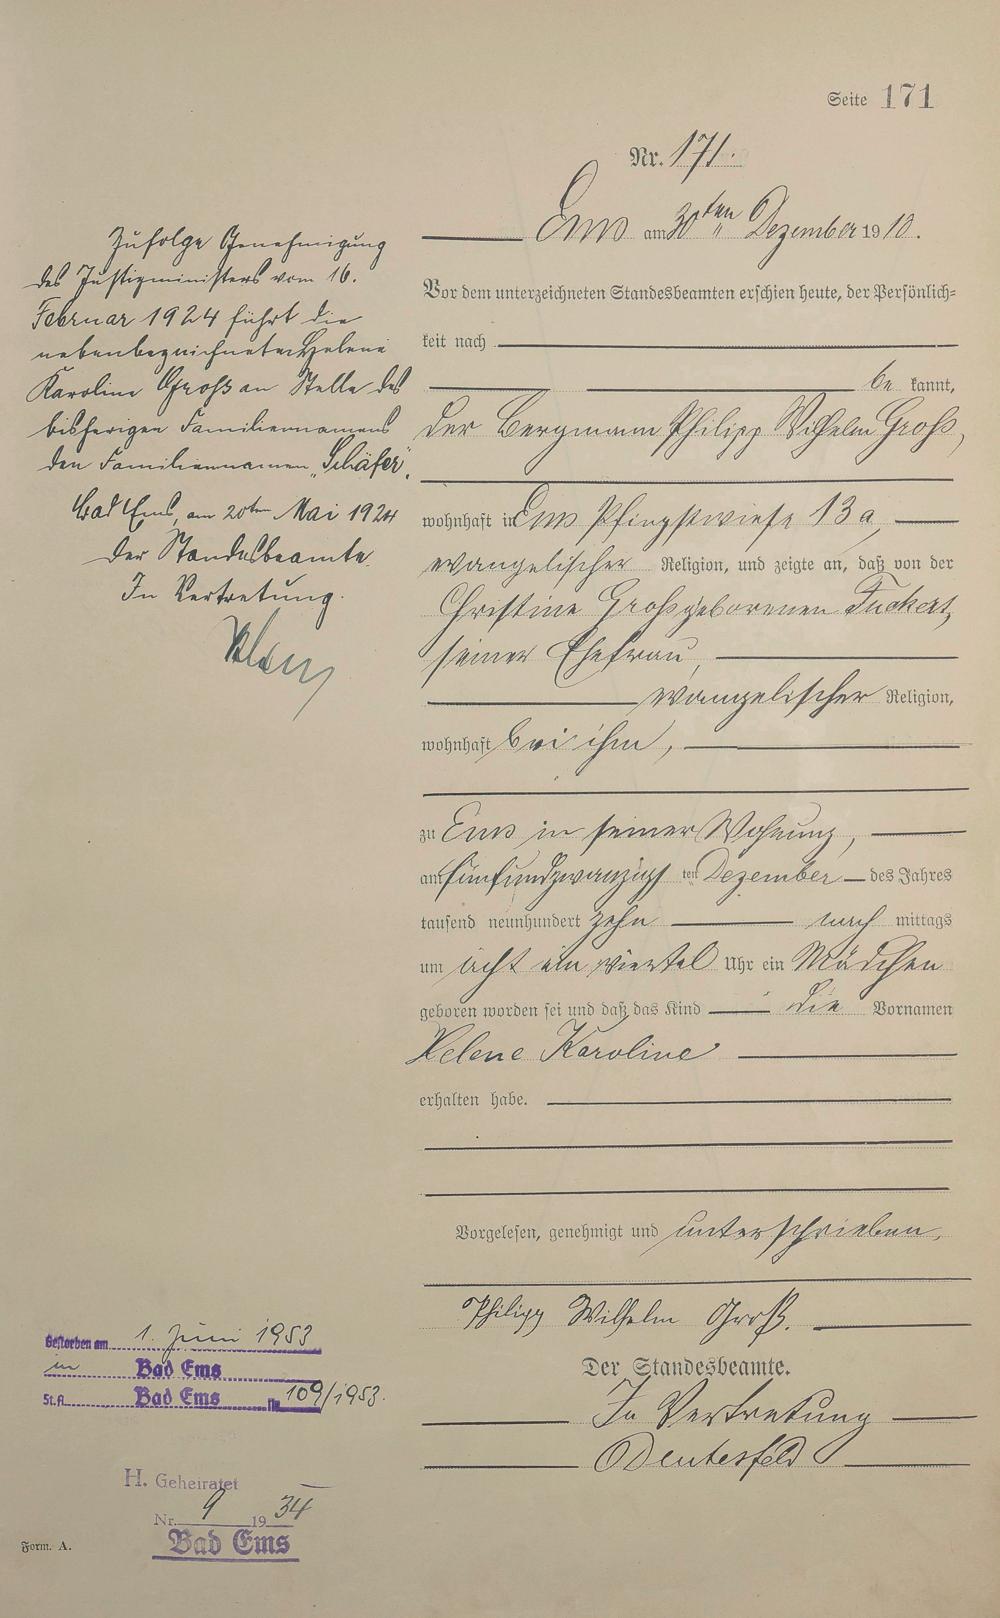 Seite 171
Nr. 171.
Ems am 30ten Dezember 1910.
Vor dem unterzeichneten Standesbeamten erschien heute, der Persönlich-
keit nach
be kannt,
der Bergmann Philipp Wilhelm Groß,
wohnhaft in Ems Pfingstwiese 13a,
evangelischer Religion, und zeigte an, daß von der
Christine Groß geborenen Tuckert,
seiner Ehefrau,
evangelischer Religion,
wohnhaft bei ihm,
zu Ems in seiner Wohnung,
am fünfundzwanzigsten Dezember des Jahres
tausend neunhundert zehn nach mittags
um acht ein viertel Uhr ein Mädchen
geboren worden sei und daß das Kind die Vornamen
Helene Karoline
erhalten habe.
Vorgelesen, genehmigt und unterschrieben.
Philipp Wilhelm Groß.
Der Standesbeamte.
In Vertretung
Deutesfeld
Zufolge Genehmigung
des Justizministers vom 16.
Februar 1924 führt die
nebenbezeichnete Helene
Karoline Groß an Stelle des
bisherigen Familiennamens
den Familiennamen „Schäfer".
Bad Ems, am 20ten Mai 1924
Der Standesbeamte.
In Vertretung.
Gestorben am 1. Juni 1953
in Bad Ems
St.A. Bad Ems Nr. 109/1953.
H. Geheiratet
Nr. 9 1934
Bad Ems
Form. A.